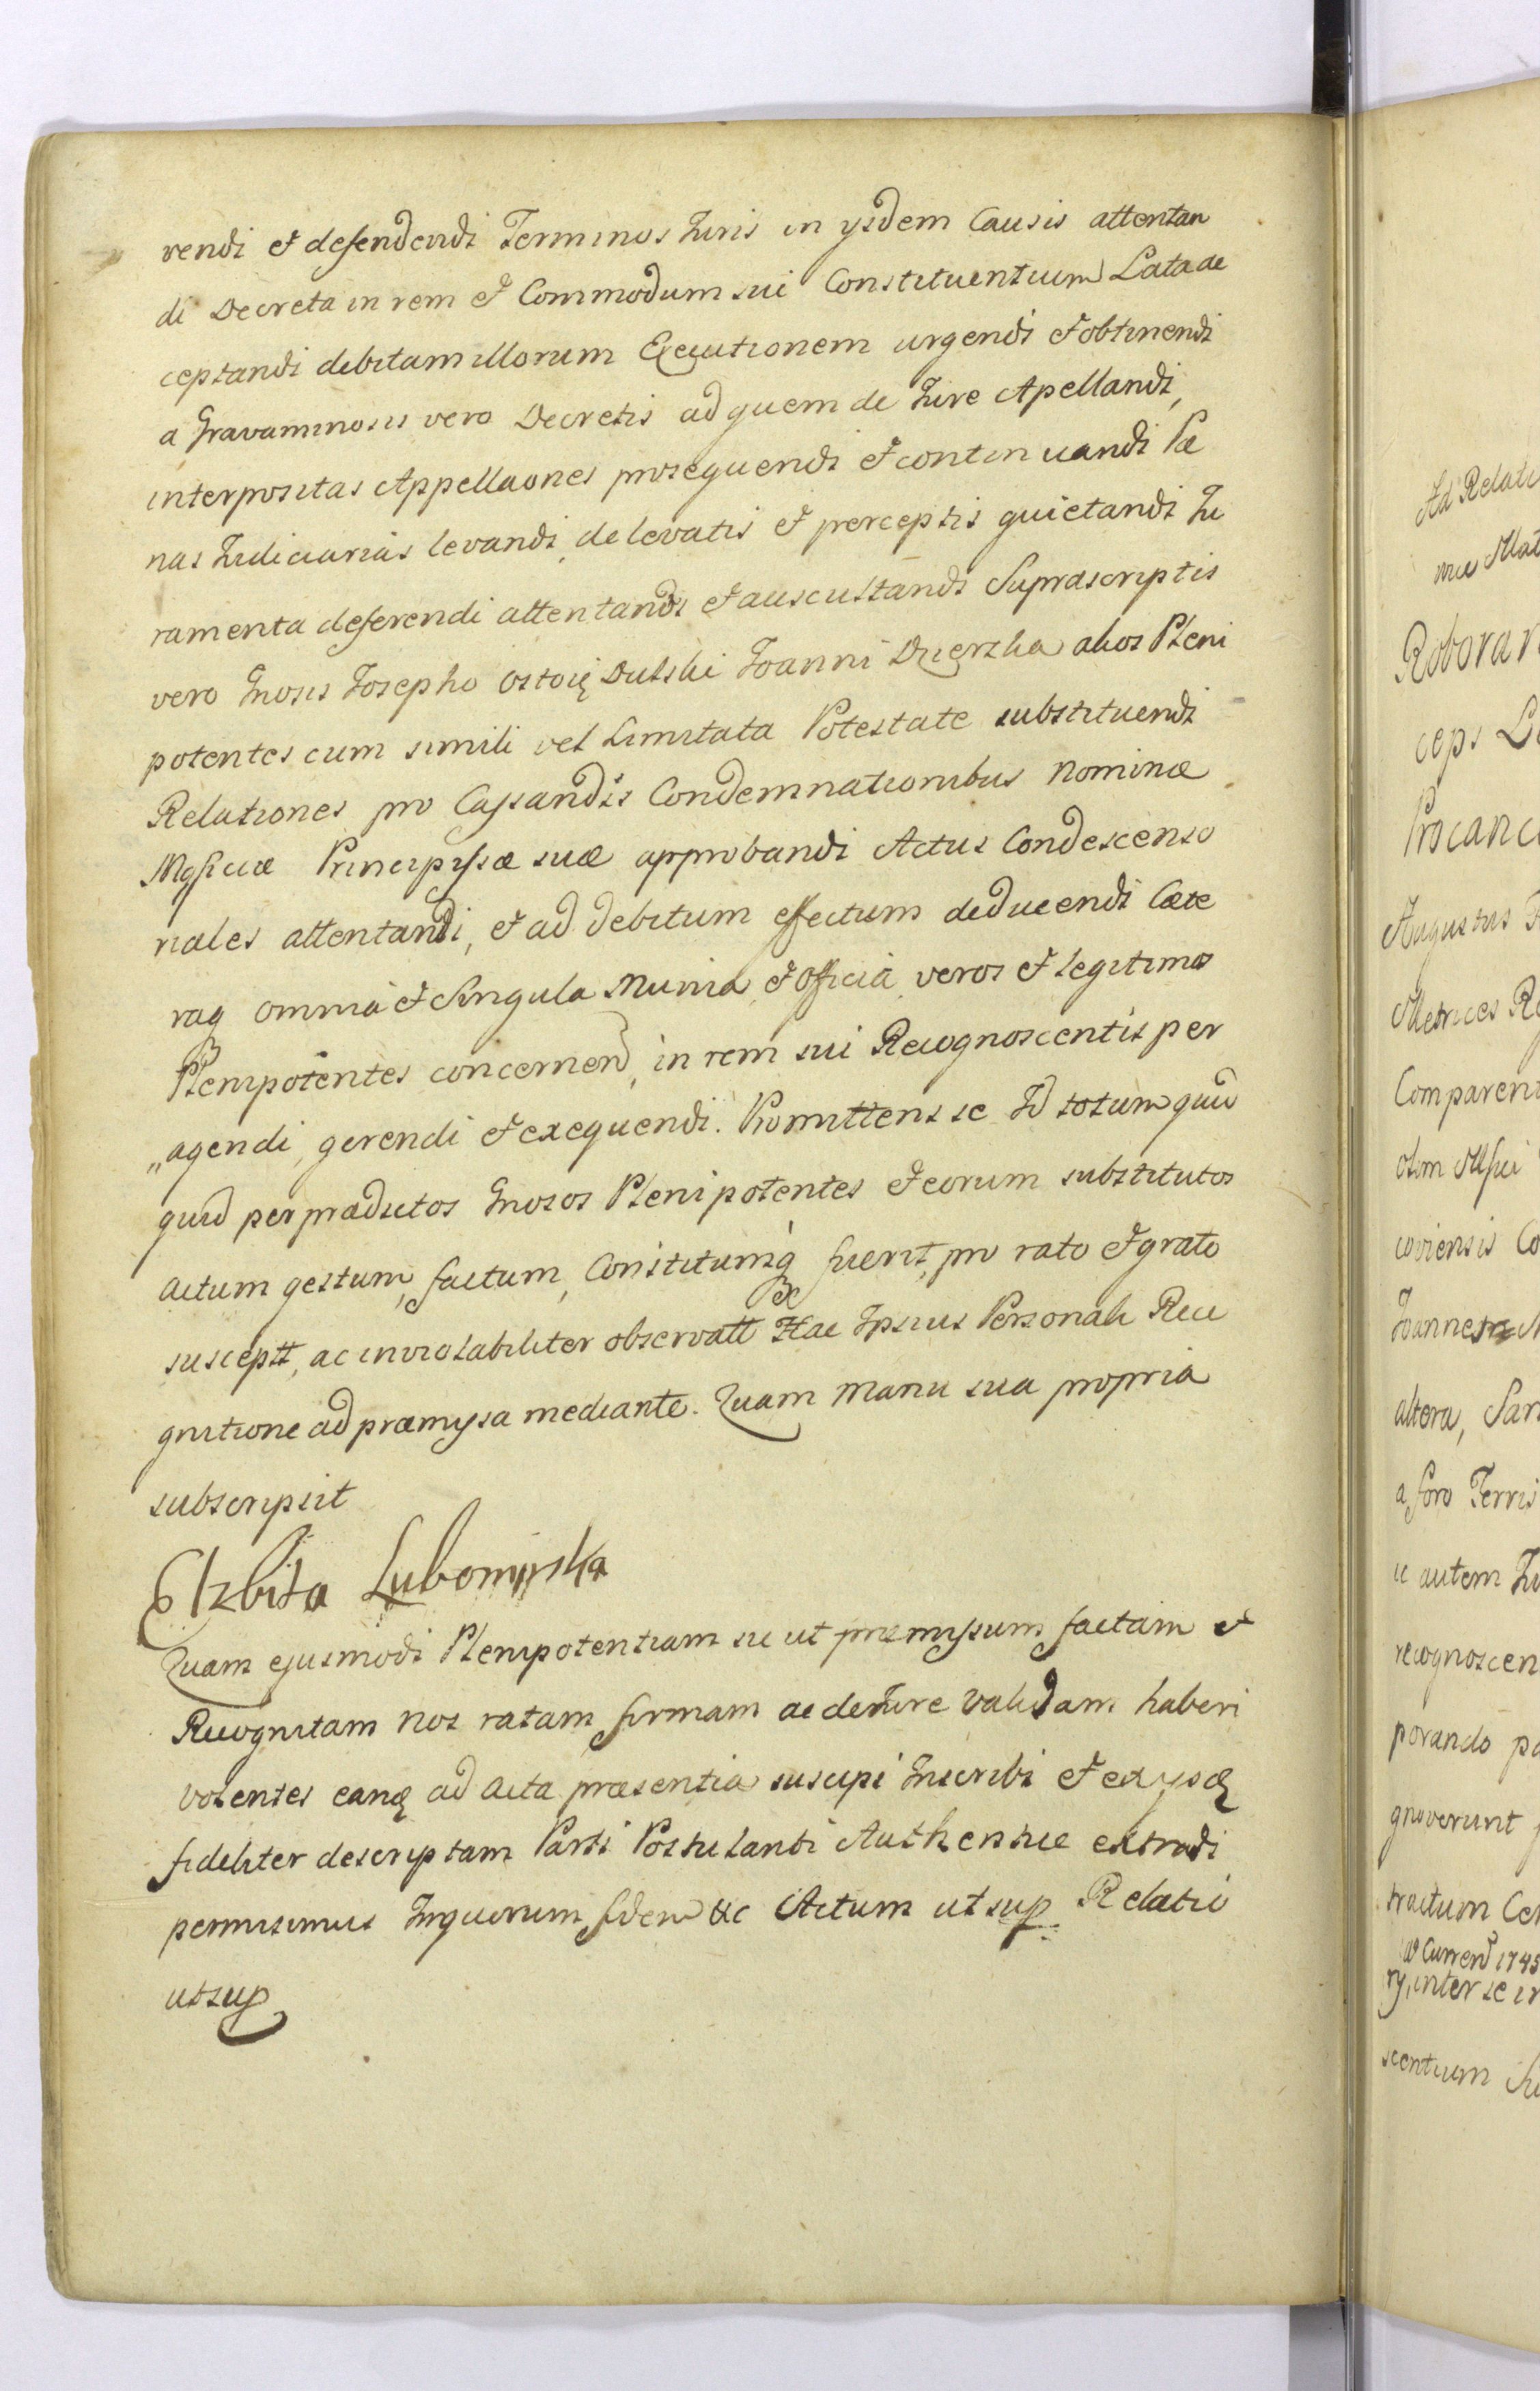 rendi et defendendi Terminos Juris in ijsdem Causis attentan
di Decreta in rem et Commodum sui Constituentium Lata ac
ceptandi debitam illorum Executionem urgendi et obtinendi
a Gravaminosis vero Decretis ad quem de Jure Apellandi,
interpositas Appellaones prosequendi et continuandi Pæ
nas Judiciarias levandi, de levatis et perceptis quietandi Ju
ramenta deferendi attentandi et auscultandi Suprascriptis
vero Gnosis Josepho Ostoię Dulski Joanni Dzierzka alios Pleni
potentes cum simili vel Limitata Potestate substituendi
Relationes pro Cassandis Condemnationibus nominæ
Mgficæ Principissæ suæ approbandi Actus Condescenso
riales attentandi, et ad debitum effectum deducendi Cæte
raq omnia et Singula Munia, et Officia, veros et legitimos
Plenipotentes concernend, in rem sui Recognoscentis per
„agendi, gerendi et exequendi. Promittens se Id totum quid
quid per prædictos Gnosos Plenipotentes et eorum substitutos
actum gestum, factum, Constitutumq fuerit, pro rato et grato
susceptt, ac inviolabiliter observatt Hac Ipsius Personali Reco
gnitione ad præmyssa mediante. Quam Manu sua propria
subscripsit
Elzbita Lubomirska
Quam ejusmodi Plenipotentiam sic ut præmyssum factam et
Recognitam nos ratam, firmam ac de Jure validam haberi
volentes eanq ad Acta præsentia suscipi Inscribi et ex ysdę
fideliter descriptam Parti Postulanti Authentice extradi
permisimus Inquorum fidem &c Actum ut sup. Relatio
ut sup
Ad Relati
Roborav
ceps
Procanc
Augustus
Metrices
Comparen
olim
coviensis
Joannes
altera,
a foro Terris
autem
recognoscen
porando
gnoverunt
tractum
Curren 1745
inter se
scentium